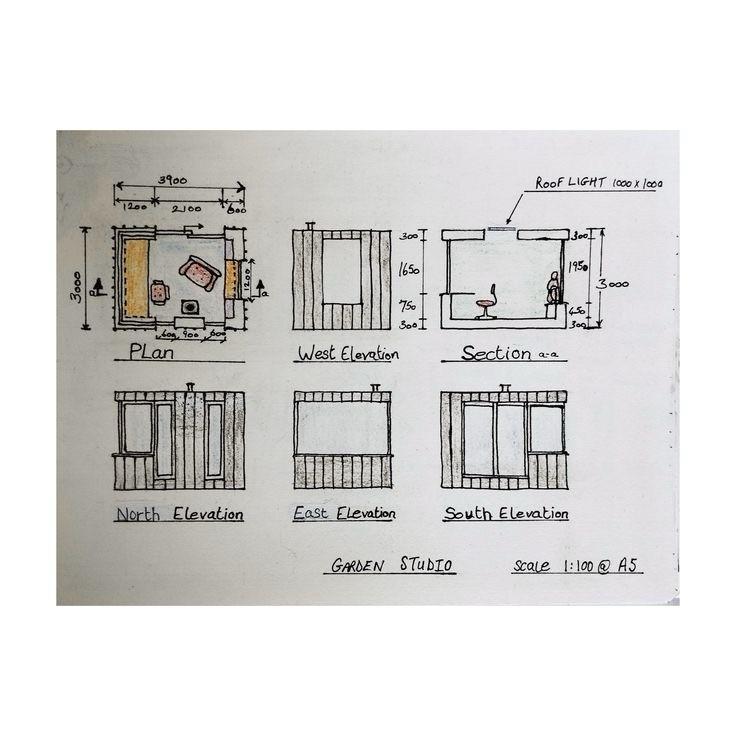 3900
1200
2100
600
3000
1200
a
a
600
900
600
Plan
West Elevation
300
1650
750
300
ROOF LIGHT 1000 x 1000
300
1950
450
300
3000
Section a-a
North Elevation
East Elevation
South Elevation
GARDEN STUDIO
Scale 1:100 @ A5